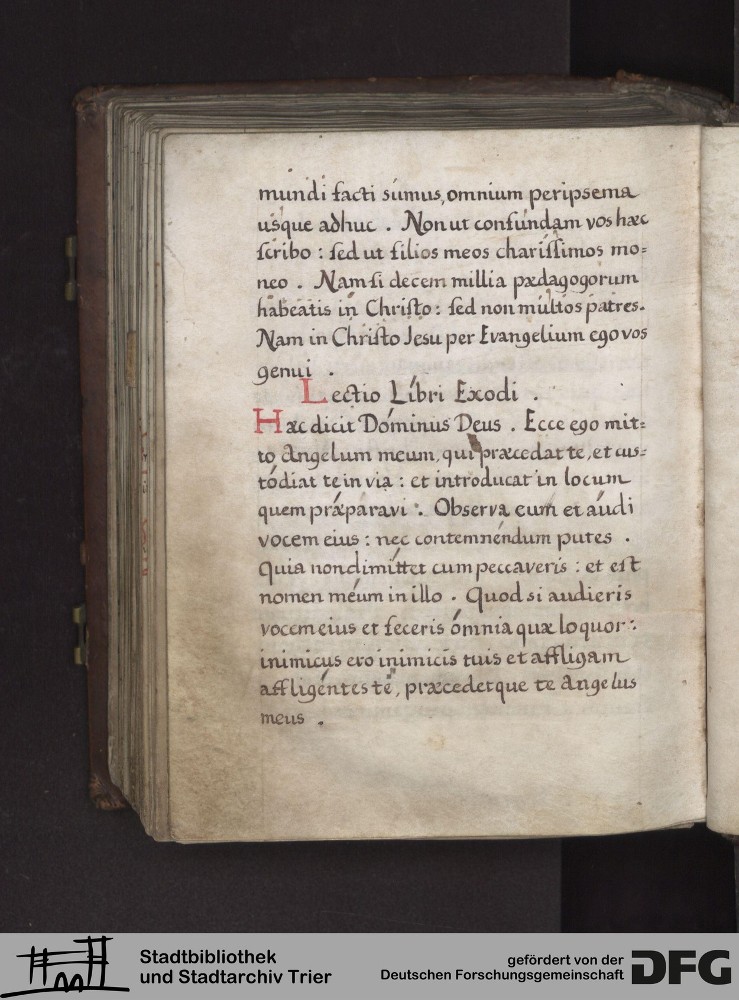 mundi facti sumus, omnium peripsema
usque adhuc . Non ut confundam vos hæc
scribo : sed ut filios meos charissimos mo=
neo . Nam si decem millia pædagogorum
habeatis in Christo : sed non multos patres .
Nam in Christo Jesu per Evangelium ego vos
genui .
Lectio Líbri Exodi .
Hæc dicit Dóminus Deus . Ecce ego mit=
to Angelum meum, qui præcedat te, et cus=
tódiat te in via : et introducat in locum
quem præparavi . Observa eum et áudi
vocem eius : nec contemnéndum putes .
Quia non dimíttet cum peccaveris : et est
nomen méum in illo . Quod si audieris
vocem eius et feceris ómnia quæ loquor :
inimicus ero inimicis tuis et affligam
affligéntes te, præcedetque te Angelus
meus .
Stadtbibliothek
und Stadtarchiv Trier
gefördert von der
Deutschen Forschungsgemeinschaft
DFG